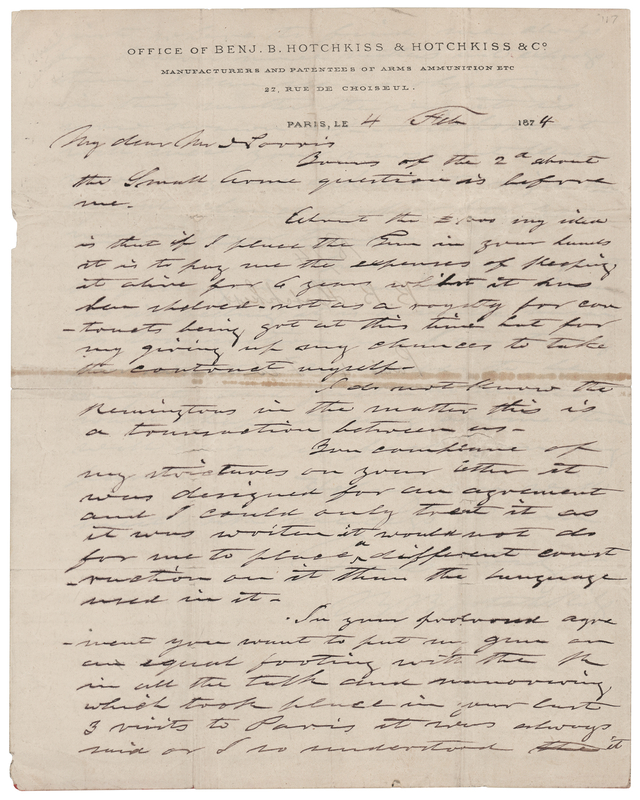 '47
OFFICE OF BENJ. B. HOTCHKISS & HOTCHKISS & Cº
MANUFACTURERS AND PATENTEES OF ARMS AMMUNITION ETC
27, RUE DE CHOISEUL.
PARIS, LE 4 Feb 1874
My dear Mr Norris
Yours of the 2d about
the Small Arms question is before
me.
About the £ my idea
is that if I place the Gun in your hands
it is to pay me the expenses of keeping
it alive for 4 years whilst it has
been shelved - not as a royalty for con
-tracts being got at this time but for
my giving up my chances to take
the contract myself -
I do not know the
Remingtons in the matter this is
a transaction between us -
You complaine of
my strictures on your letter it
was designed for an agreement
and I could only treat it as
it was written it would not do
for me to place a different const
-ruction on it than the language
used in it -
In your proposed agre
-ment you want to put my gun on
an equal footing with the
in all the talk and manovering
which took place in your last
3 visits to Paris it was always
said or I so understood the it